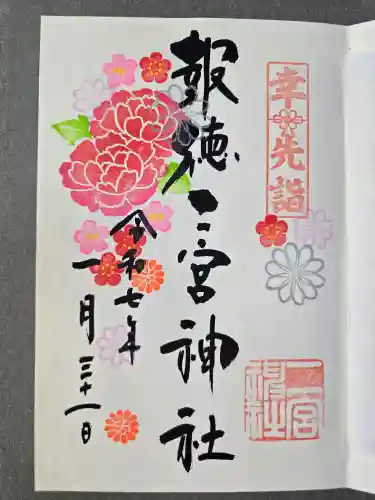 幸先詣
二宮
神社
報徳二宮神社
令和七年
一月三十一日